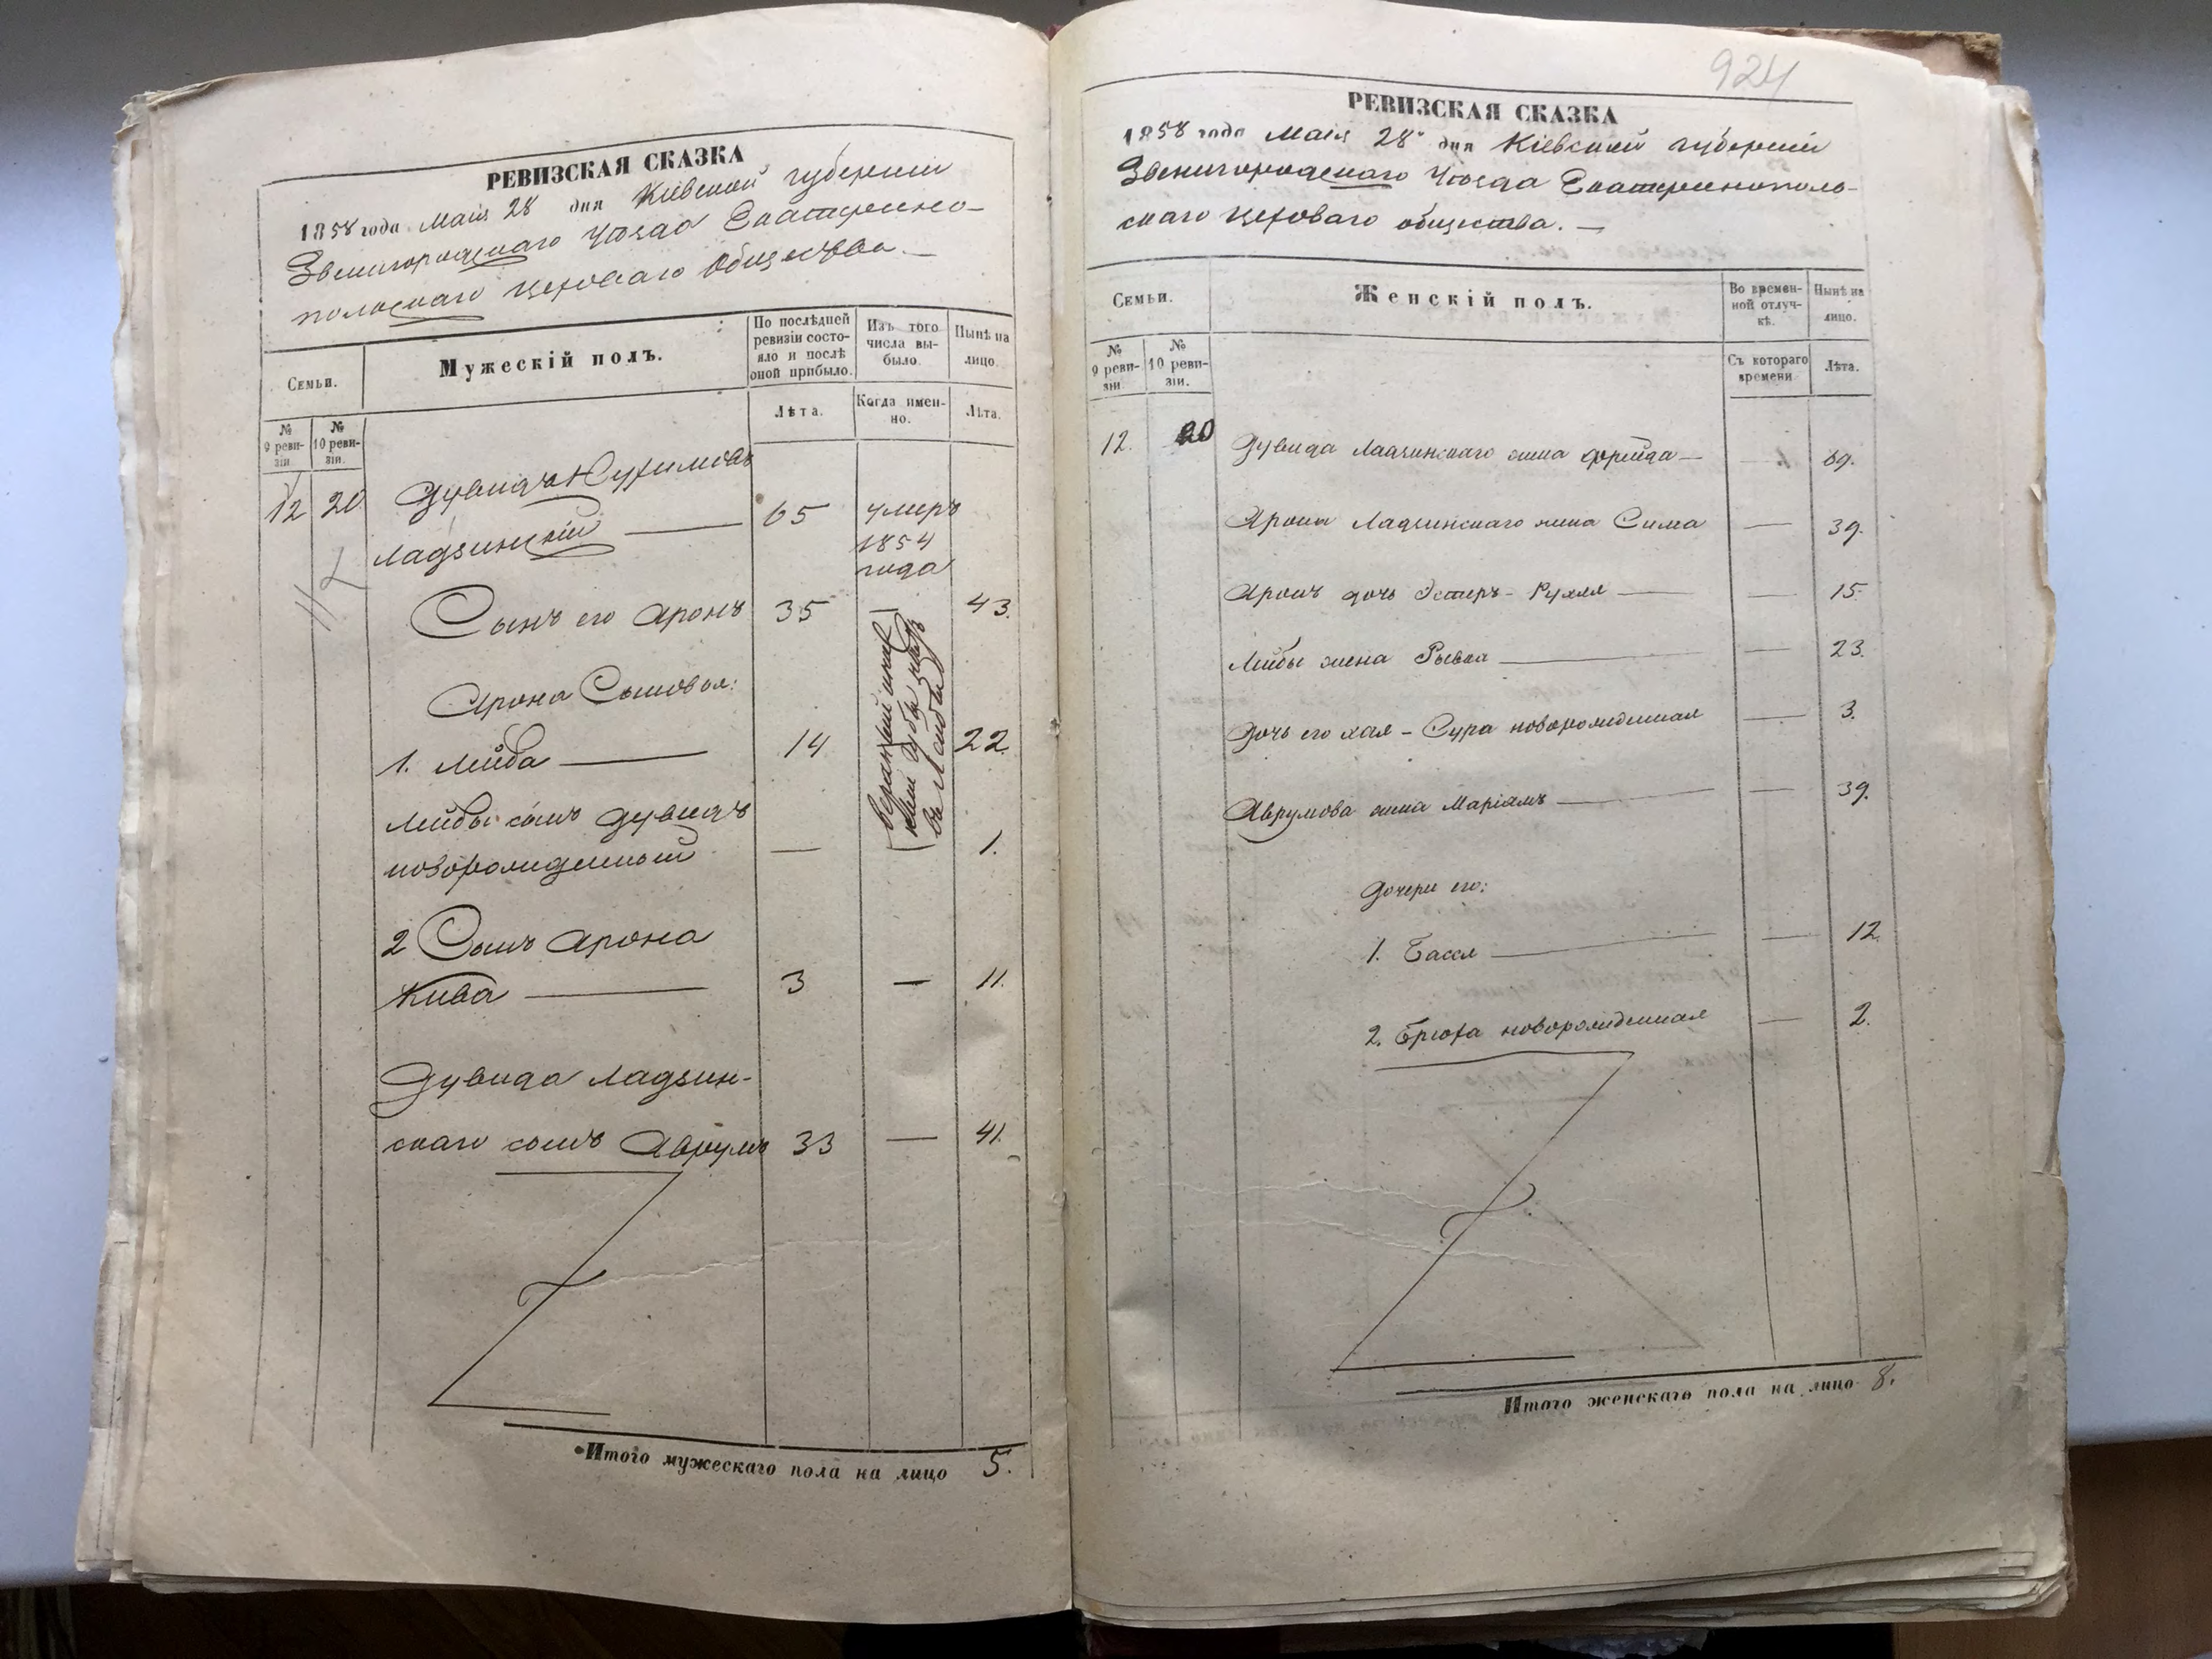 РЕВИЗСКАЯ СКАЗКА
1858 года Маія 28 дня Кіевской губерніи
Звенигородскаго Уѣзда Екатерино-
польскаго Цеховаго Общества.—
Семьи.
Мужескій полъ.
По послѣдней ревизіи состо-
яло и послѣ оной прибыло.
Изъ того числа вы-
было.
Нынѣ на лицо.
№ 9 реви-
зіи.
№ 10 реви-
зіи.
Лѣта.
Когда имен-
но.
Лѣта.
12 20 Дувидъ Нухимовъ
Ладзинскій — 65 умеръ 1854 года
Сынъ его Аронъ 35 — 43.
Арона Сыновья:
1. Лейба — 14 22.
Лейбы сынъ Дувидъ
новорожденный — 1.
2 Сынъ Арона
Кива — 3 — 11.
Дувида Ладзин-
скаго сынъ Аврумъ 33 — 41.
Итого мужескаго пола на лицо 5.
924
РЕВИЗСКАЯ СКАЗКА
1858 года Маія 28 дня Кіевской губерніи
Звенигородскаго Уѣзда Екатеринополь-
скаго Цеховаго общества.—
Семьи.
Женскій полъ.
Во времен-
ной отлуч-
кѣ.
Нынѣ на лицо.
№ 9 реви-
зіи
№ 10 реви-
зіи.
Съ котораго времени
Лѣта.
12. 20 Дувида Ладзинскаго жена Фрейда — 69.
Арона Ладзинскаго жена Сима — 39.
Арона дочь Эстеръ-Рухля — — 15.
Лейбы жена Рывка — — 23.
Дочь его Хая-Сура новорожденная — 3.
Аврумова жена Маріамъ — — 39.
Дочери его:
1. Бася — — 12.
2. Брюха новорожденная — 2.
Итого женскаго пола на лицо 8.